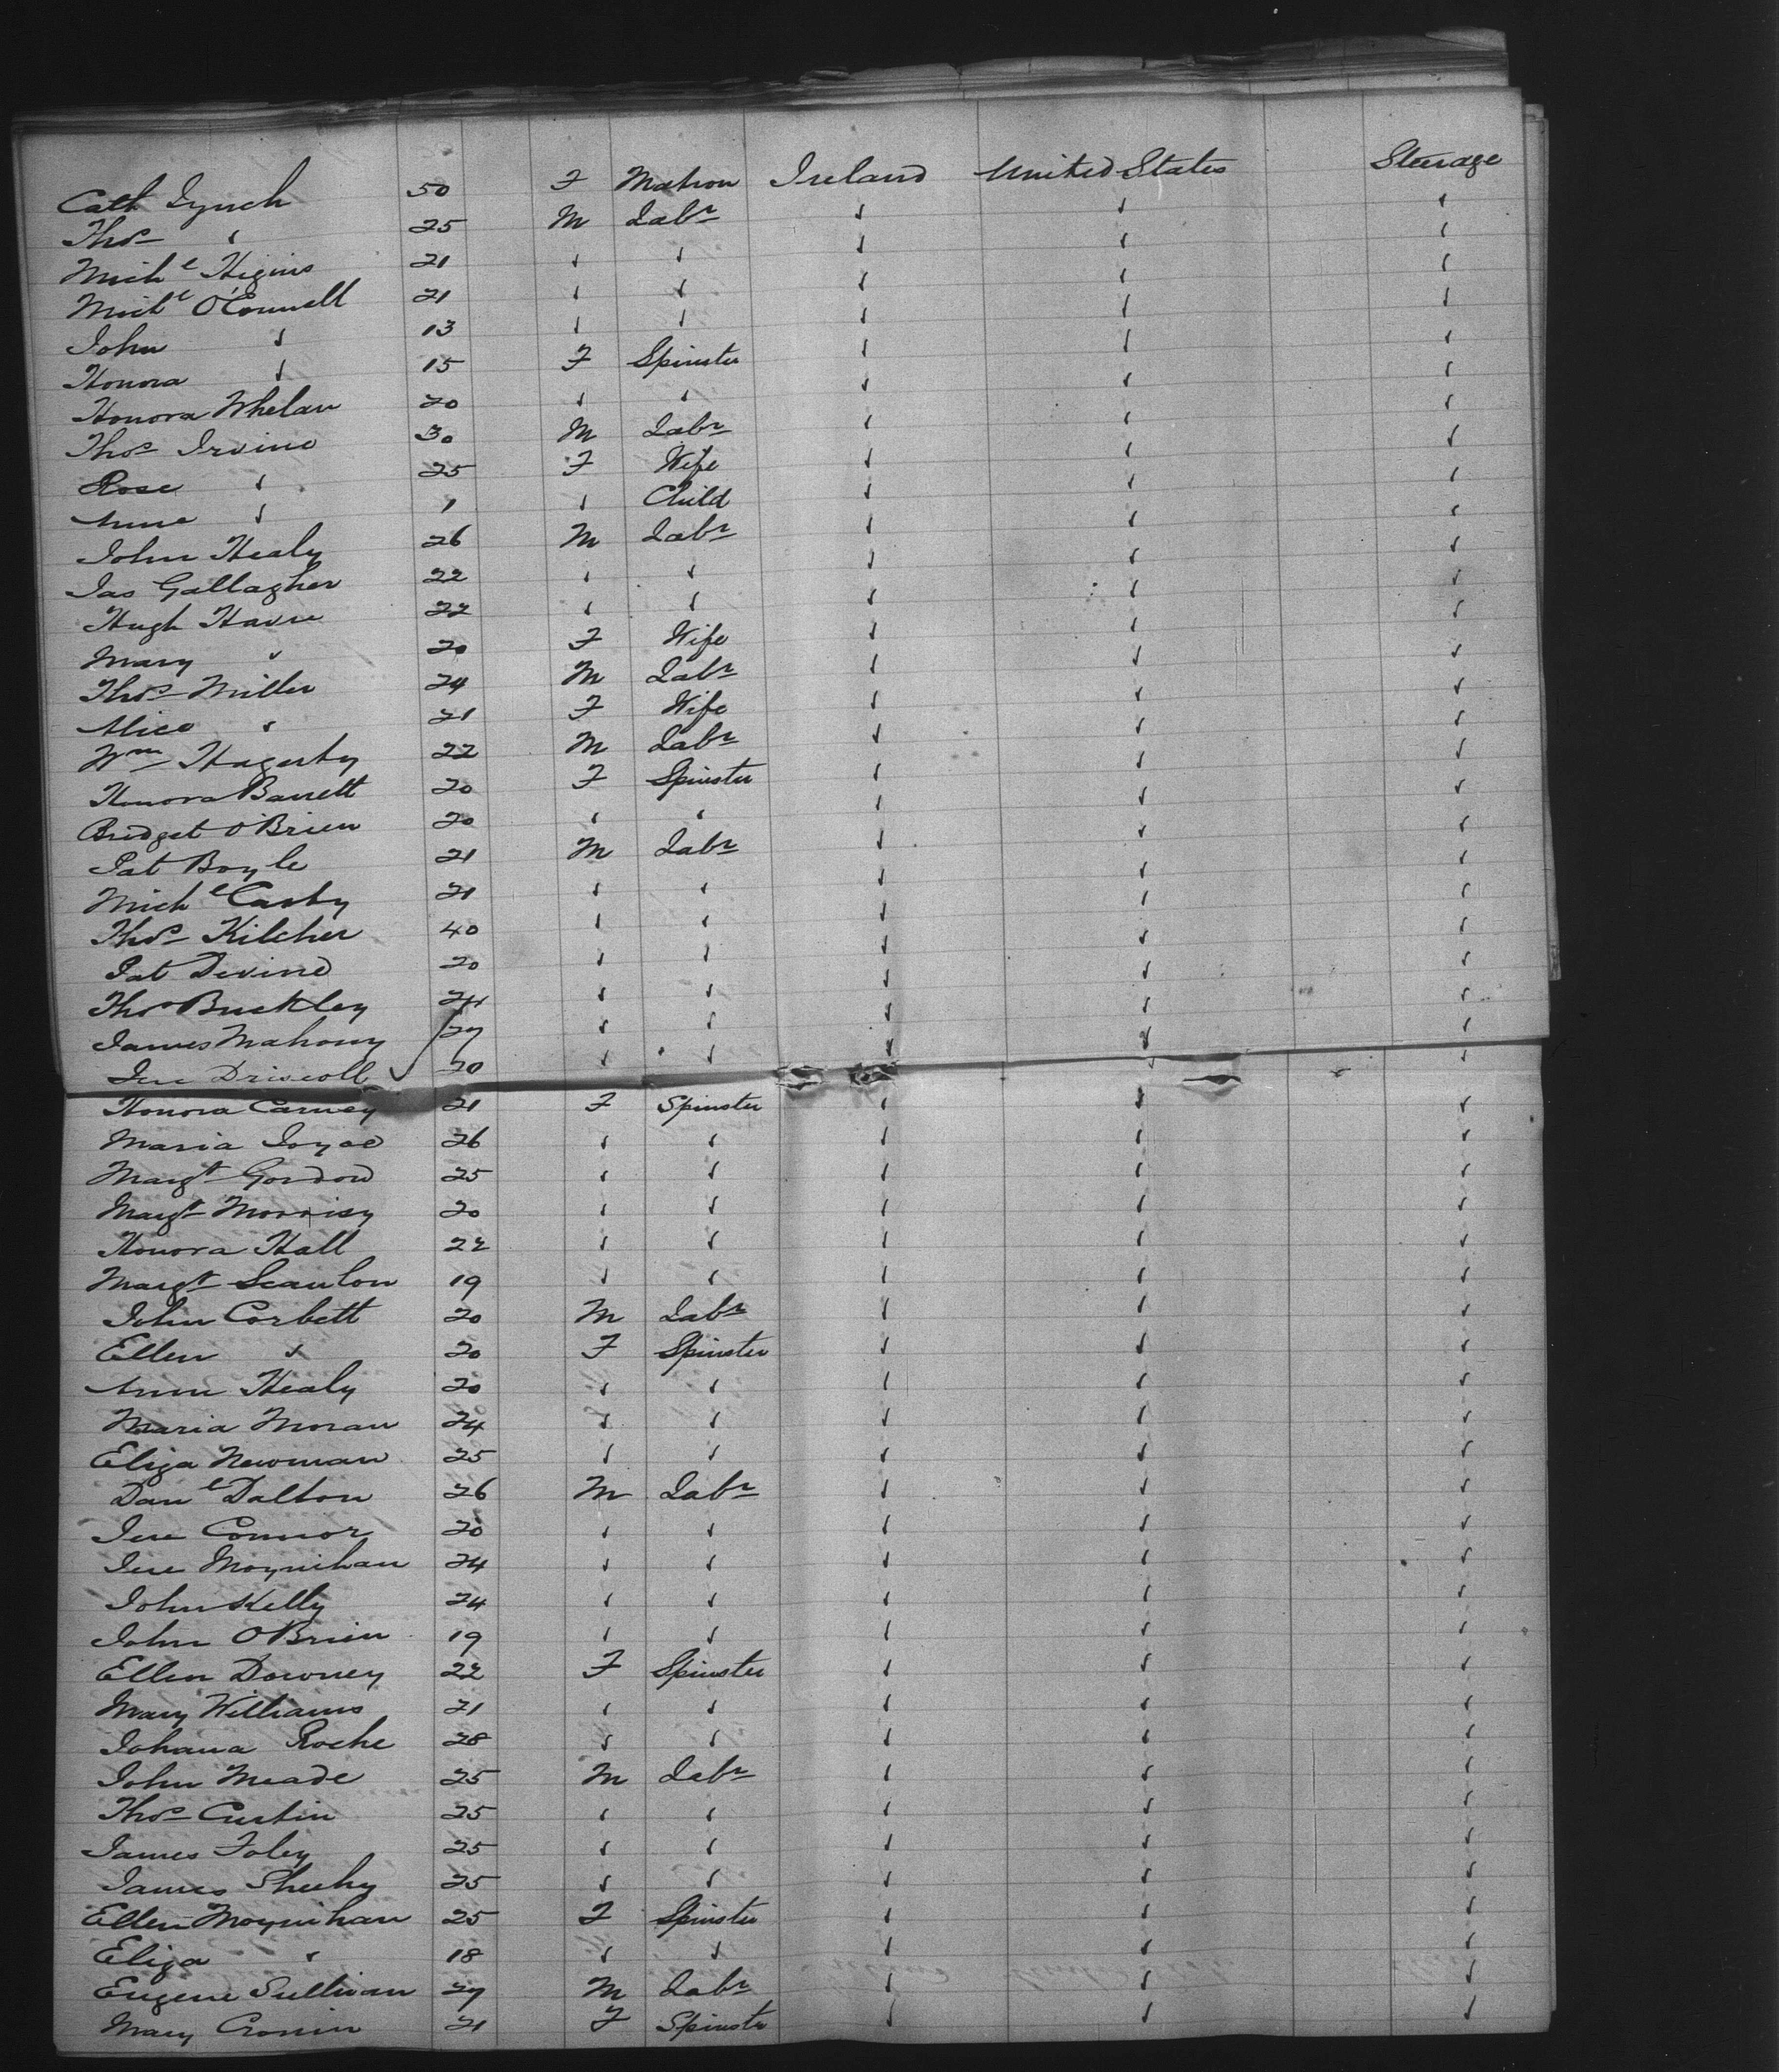 Cath Lynch 50 F Matron Ireland United States Steerage
Thos " 25 M Labr " " "
Michl Higins 21 " " " " "
Michl O'Connell 21 " " " " "
John " 13 " " " " "
Honora " 15 F Spinster " " "
Honora Whelan 20 " " " " "
Thos Irvine 30 M Labr " " "
Rose " 25 F Wife " " "
Anne " 1 " Child " " "
John Healy 26 M Labr " " "
Jas Gallagher 22 " " " " "
Hugh 22 " " " " "
Mary " 20 F Wife " " "
Thos Miller 24 M Labr " " "
Alice " 21 F Wife " " "
Wm Hagerty 22 M Labr " " "
Honora Barrett 20 F Spinster " " "
Bridget O'Brien 20 " " " " "
Pat Boyle 21 M Labr " " "
Michl 21 " " " " "
Thos Kilcher 40 " " " " "
Pat Devine 20 " " " " "
Thos Buckley 24 " " " " "
James Mahony 27 " " " " "
Jere Driscoll 20 " " " " "
Honora Carney 21 F Spinster " " "
Maria Joyce 26 " " " " "
Margt Gordon 25 " " " " "
Margt Morrisy 20 " " " " "
Honora Hall 22 " " " " "
Margt Scanlon 19 " " " " "
John Corbett 20 M Labr " " "
Ellen " 20 F Spinster " " "
Anne Healy 20 " " " " "
Maria Moran 24 " " " " "
Eliza Newman 25 " " " " "
Danl Dalton 26 M Labr " " "
Jere Connor 20 " " " " "
Jere Moynihan 24 " " " " "
John Kelly 24 " " " " "
John O'Brien 19 " " " " "
Ellen Downey 22 F Spinster " " "
Mary Williams 21 " " " " "
Johana Roche 28 " " " " "
John Meade 25 M Labr " " "
Thos Curtin 25 " " " " "
James Foley 25 " " " " "
James Sheehy 25 " " " " "
Ellen Moynihan 25 F Spinster " " "
Eliza " 18 " " " " "
Eugene Sullivan 27 M Labr " " "
Mary Cronin 21 F Spinster " " "